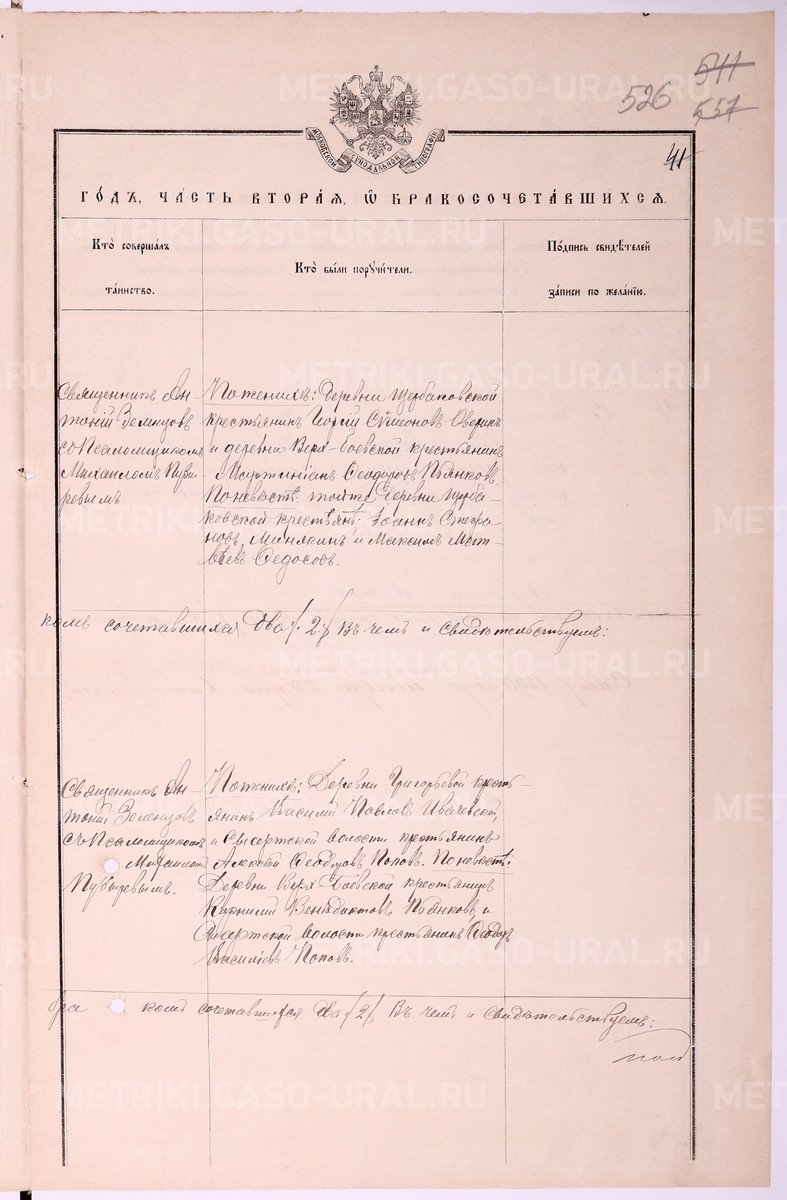 511
526 557
41
МОСКОВСКОЙ СѴНОДАЛЬНОЙ ТИПОГРАФІИ
ГО́ДЪ, ЧА́СТЬ ВТОРА́Я, Ѽ БРАКОСОЧЕТА́ВШИХСЯ.
Кто̀ соверша́лъ
та́инство.
Кто̀ бы́ли порꙋчи́тели.
По́дпись свидѣ́телей
за́писи по жела́нїю.
Священникъ Ан-
тоній Зеленцовъ
съ Псаломщикомъ
Михаиломъ Пузы-
ревымъ.
По женихѣ: Деревни Щербаковской
крестьянинъ Георгій Сѵмеоновъ
и деревни Верх-боевской крестьянинъ
Мартиніанъ Ѳеодоровъ Пьянковъ.
По невѣстѣ: тойже Деревни Щерба-
ковской крестьяне: Іоаннъ Стефа-
новъ Минякинъ и Максимъ Мат-
вѣевъ Ѳедосовъ.
комъ сочетавшихся два /2/ Въ чемъ и свидѣтельствуемъ:
Священникъ Ан-
тоній Зеленцовъ
съ Псаломщикомъ
Михаилом
Пузыревымъ.
По женихѣ: Деревни Григорьевой кресть-
янинъ Василій Павловъ
и Сысертской волости крестьянинъ
Алексѣй Ѳеодоровъ Поповъ. По невѣстѣ:
Деревни Верх-Боевской крестьянинъ
Корнилій Венедиктовъ Пьянковъ, и
Сысертской волости крестьянинъ Ѳеодоръ
Василіевъ Поповъ.
бра комъ сочетавшихся два /2/ Въ чемъ и свидѣтельствуемъ:
METRIKI.GASO-URAL.RU